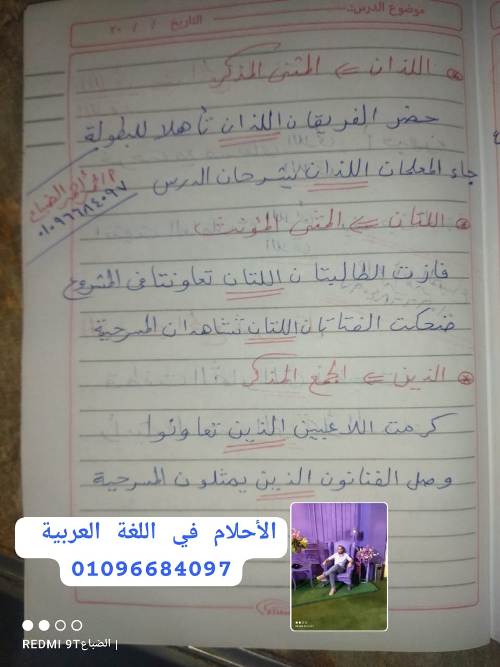 موضوع الدرس:
التاريخ / / ٢٠
اللذان => المثنى المذكر
حضر الفريقان اللذان تأهلا للبطولة
جاء المعلمان اللذان يشرحان الدرس
الضباع
٠١٠٩٦٦٨٤٠٩٧
اللتان => المثنى المؤنث
فازت الطالبتان اللتان تعاونتا في المشروع
ضحكت الفتاتان اللتان تشاهدان المسرحية
الذين => الجمع المذكر
كرمت اللاعبين الذين تعاونوا
وصل الفنانون الذين يمثلون المسرحية
الأحلام في اللغة العربية
01096684097
REDMI 9T الضباع |